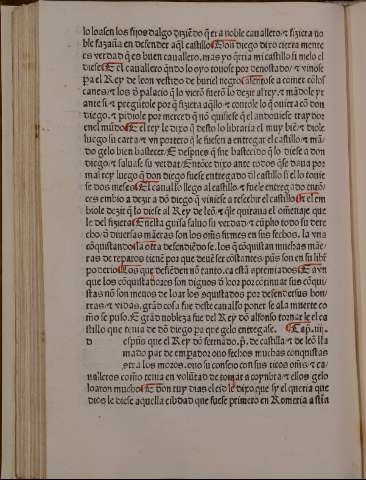 lo loasen los fijos dalgo diziēdo q̄ era noble cavallero / ⁊ fiziera no
ble fazaña en defender aq̄l castillo. E don diego dixo cierta mente
es verdad q̄ es buen cavallero. mas yo q̄rria mi castillo si melo el
diese. E el cavallero q̄ndo lo oyo tovose por denostado / ⁊ vinose
pa el Rey de leon vestido de buriel negro / asentose a comer cō los
canes / ⁊ los d̄ palacio q̄ lo vierō fuerō lo dezir al rey. ⁊ mādole yr
ante si ⁊ pregūtole por q̄ fiziera aq̄llo ⁊ contole lo q̄ oviera cō don
diego. ⁊ pidiole por merced q̄ nō quisiese q̄ el andoviese tray dor
enel mūdo. E el rey le dixo q̄ desto lo libraria el muy biē ⁊ diole
luego su carta ⁊ vn portero q̄ le fuesen a entregar el castillo ⁊ mā
do gelo bien bastecer. E despues q̄ fue bastecido q̄ lo diese a don
diego. ⁊ salvase su verdat / Entōce dixo ante todos q̄ se dava por
mal rey luego q̄ don diego fuese entregado dl̄ castillo si el lo tovie
se dos meses. E el cavallo llego al castillo ⁊ fuele entregado entō
ces embio a dezir a dō diego q̄ viniese a rescebir el castillo. ⁊ el em
biole dezir q̄ lo diese al Rey de leō ⁊ q̄le quitava el omenaje que
le del fiziera. E nesta guisa salvo su verdat / ⁊ cūplio todo su dere
cho. d̄ diversas māeras son los oms̄ firmes en sus fechos. la vna
cōquistando. la otra defendiēdo se. los q̄ cōquistan muchas māe
ras de reparos tienē por que devē ser cōstantes. pus̄ son en su libr̄
poderio. los que defiēden nō tanto. ca estā apremiados. E avn
que los cōquistadores son dignos d̄ loor por continuar sus cōqui
stas nō son menos de loar los aquistados por defender sus hon
rras ⁊ vidas. grād cosa fue deste cavall̄o poner se ala muerte co
mō se puso. E grād nobleza fue del Rey dō alfonso tornar le el ca
stillo que tenia de dō diego pa que gelo entregase. Cap̄. iiij.
d espues que el Rey dō fernado. p̄. de castilla ⁊ de leō lla
mado par de emperador ovo fechos muchas conquistas
contra los moros. ovo su consejo con sus ricos oms̄ ⁊ ca
valleros como tenia en volūtad de tomar a coynbra / ⁊ ellos gelo
loaron mucho. E don ruy dias el cid le dixo que sy el queria que
dios le diese aquella cibdad que fuese primero en Romeria a stia